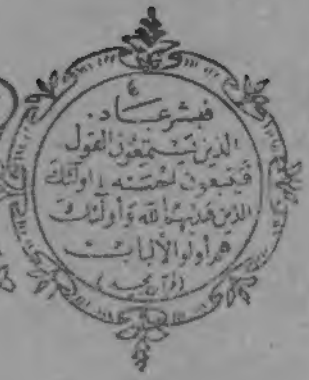 ٤
فبشر عباد.
الذين يستمعون القول
فيتبعون احسنه اولئك
الذين هدىهم الله و أولئك
هم أولوا الألباب
(قرآن مجيد)